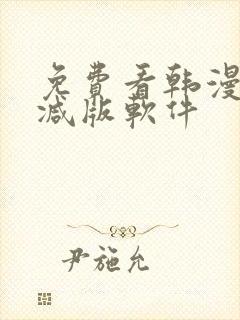 免費看韩漫
减版軟件
尹施允